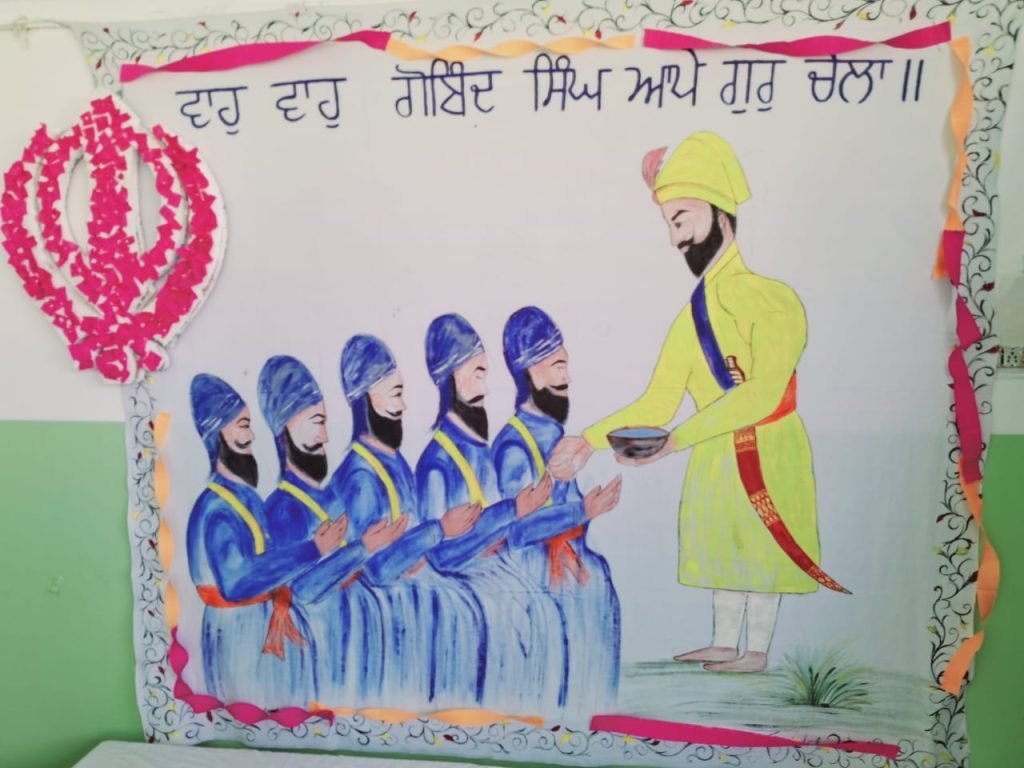 ਵਾਹੁ ਵਾਹੁ ਗੋਬਿੰਦ ਸਿੰਘ ਆਪੇ ਗੁਰੁ ਚੇਲਾ॥